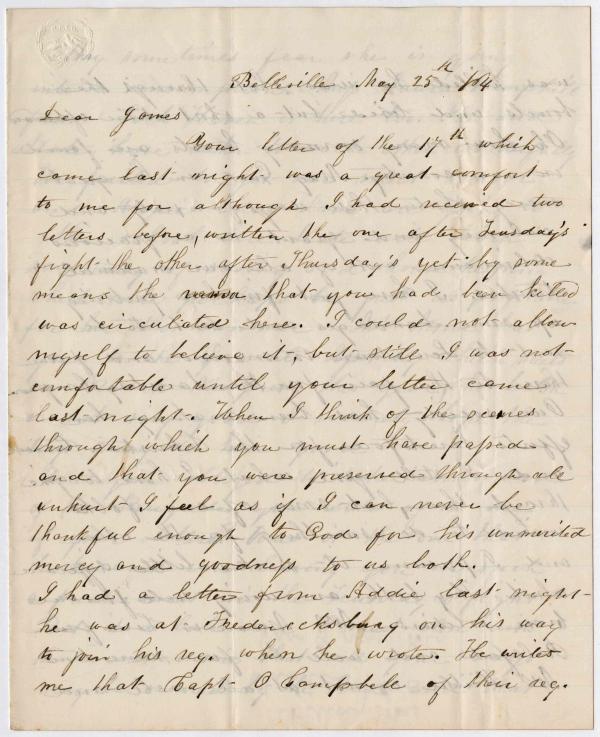 Belleville May 25th /64
Dear James
Your letter of the 17th which
came last night was a great comfort
to me for although I had received two
letters before, written the one after Teusday's
fight the other after Thursday's yet by some
means the that you had been killed
was circulated here. I could not allow
myself to believe it, but still I was not
comfortable until your letter came
last night. When I think of the scenes
throught which you must have passed
and that you were preserved through all
unhurt I feel as if I can never be
thankful enough to God for his unmerited
mercy and goodness to us both.
I had a letter from Addie last night
he was at Fredericksburg on his way
to join his reg. when he wrote. He writes
me that Capt O Campbell of their reg.